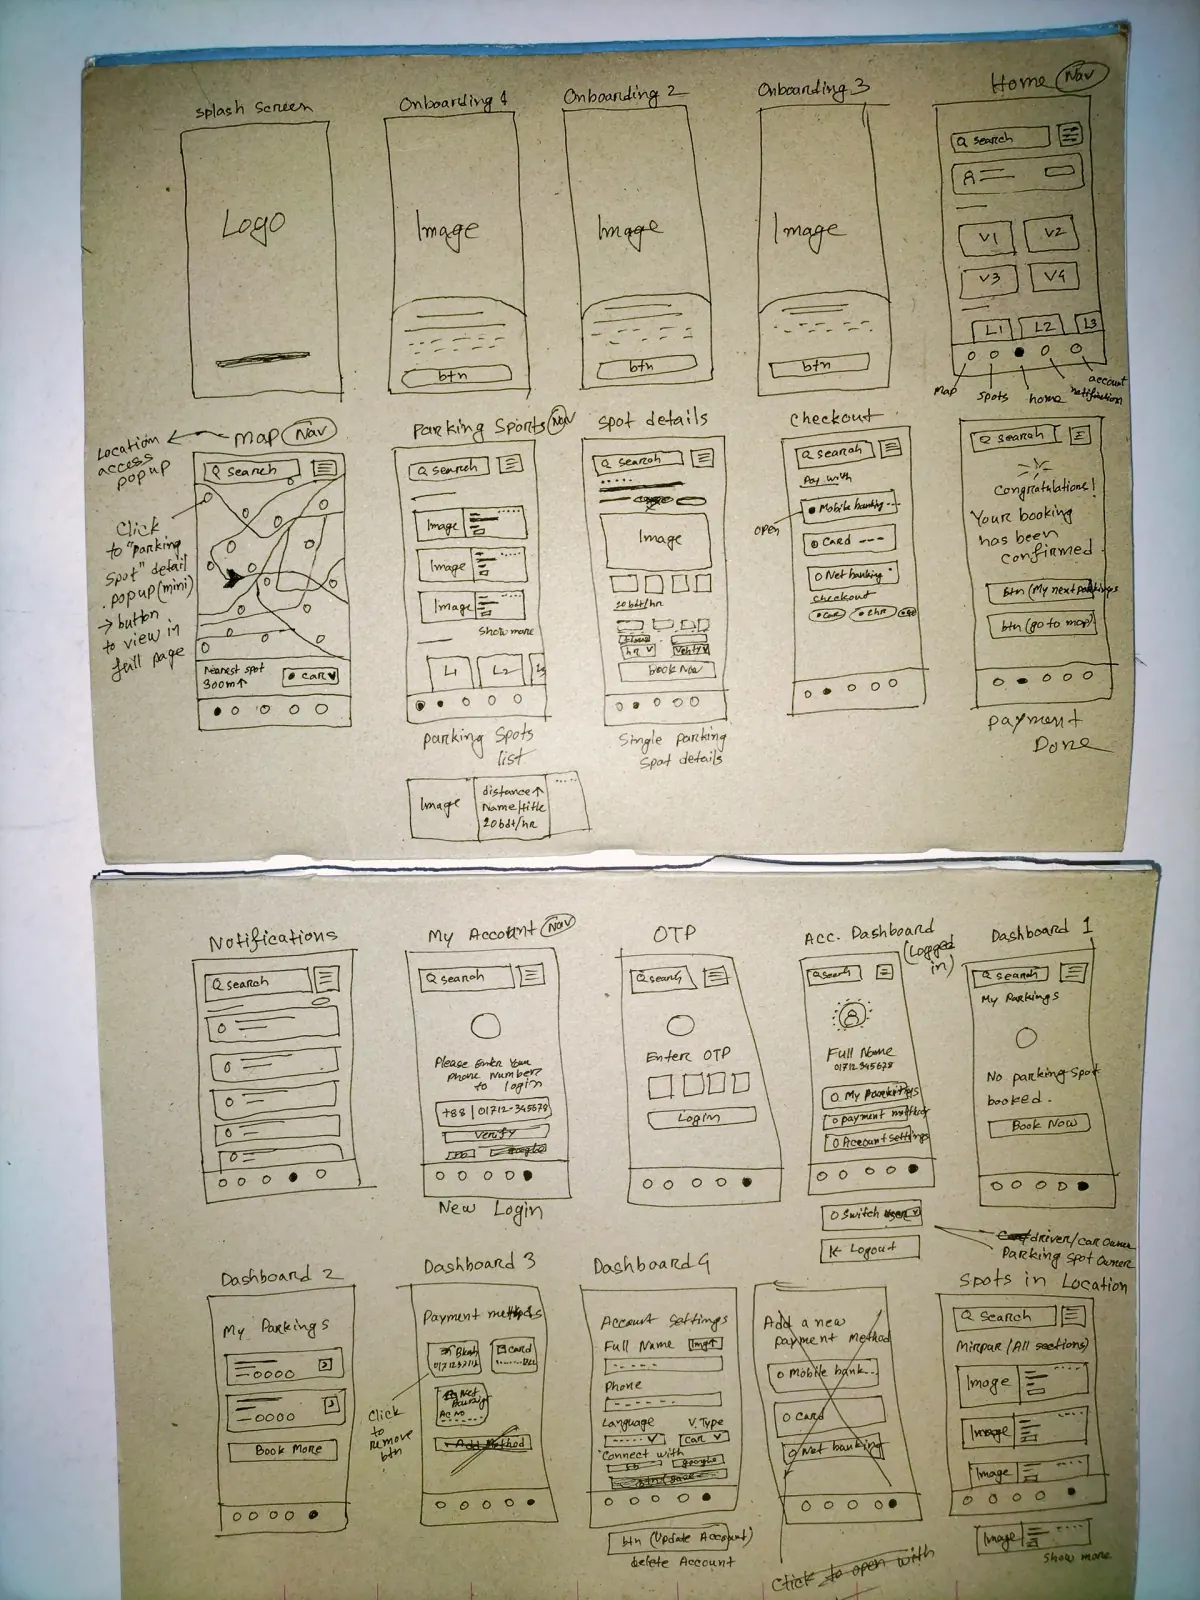 Splash Screen
Logo
Onboarding 1
Image
btn
Onboarding 2
Image
btn
Onboarding 3
Image
btn
Home Nav
Search
V1 V2
V3 V4
L1 L2 L3
map
spots
home
notification
account
Location
access
popup
Click
to "parking
spot" detail
popup (mini)
→ button
to view in
full page
Map Nav
Search
Nearest spot
300m↑
Car
Parking Spots Nav
Search
Image
Image
Image
Show more
L1 L2 L3
Parking Spots
list
Image
distance↑
Name/title
20bdt/hr
Spot details
Search
Image
20bdt/hr
hr
Book Now
Single parking
Spot details
Checkout
Search
Pay with
open
Mobile banking
Card
Net banking
Checkout
Search
Congratulations!
Your booking
has been
confirmed.
btn (My next parkings
btn (go to map)
Payment
Done
Notifications
Search
My Account Nav
Search
Please Enter Your
phone number
to login
+88 | 01712-345678
Verify
New Login
OTP
Search
Enter OTP
Login
Acc. Dashboard
(Logged
in)
Search
Full Name
01712345678
My Parkings
payment method
Account settings
Switch
Logout
driver/car owner
Parking spot owner
Dashboard 1
Search
My Parkings
No parking spot
booked.
Book Now
Dashboard 2
My Parkings
Book More
Dashboard 3
Payment methods
Card
Net
Click
to
remove
btn
+ Add Method
Dashboard 4
Account settings
Full Name Img↑
Phone
Language V. Type
Car
Connect with
google
btn (Update Account)
delete Account
Add a new
payment method
Mobile bank...
Card
Net banking
Click to open with
Spots in Location
Search
Mirpur (All sections)
Image
Image
Image
Image
Show more